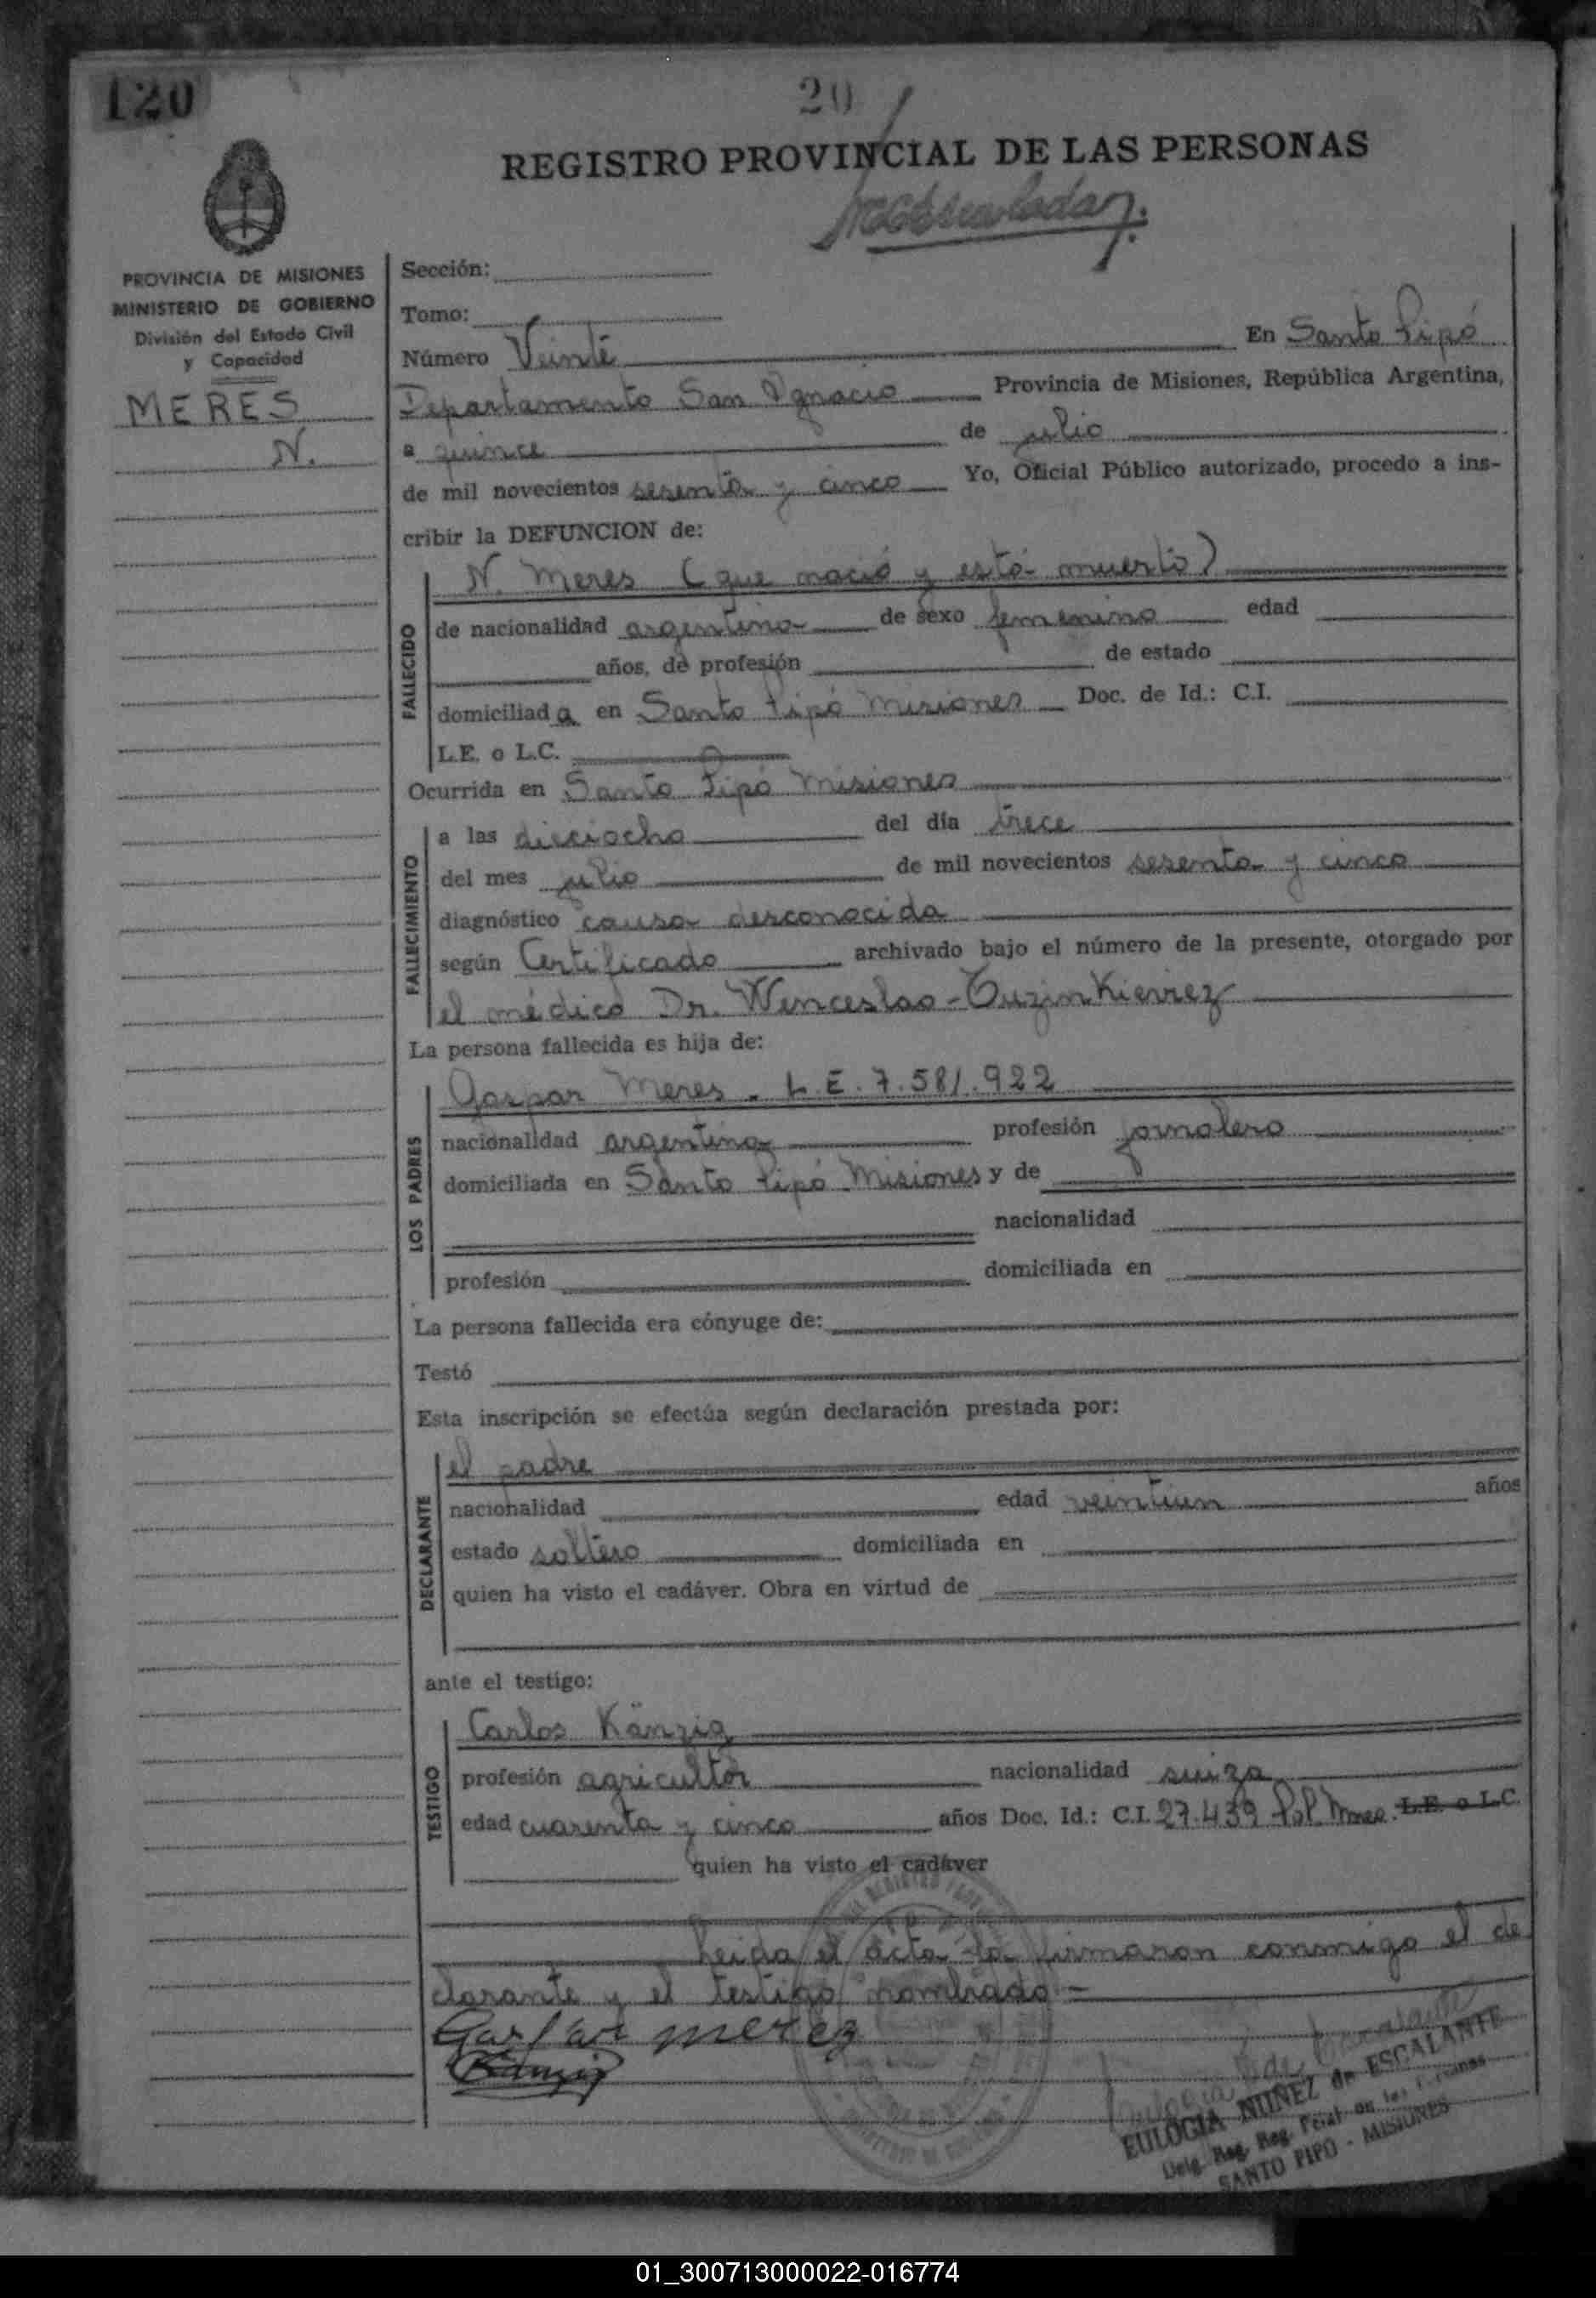 120
20
REGISTRO PROVINCIAL DE LAS PERSONAS
PROVINCIA DE MISIONES
MINISTERIO DE GOBIERNO
División del Estado Civil
y Capacidad
MERES
N.
Sección:
Tomo:
Número Veinte En Santo Pipó
Departamento San Ignacio Provincia de Misiones, República Argentina,
a quince de julio
de mil novecientos sesenta y cinco Yo, Oficial Público autorizado, procedo a ins-
cribir la DEFUNCION de:
FALLECIDO
N. Meres (que nació y está muerto)
de nacionalidad argentina de sexo femenino edad
años, de profesión de estado
domiciliada en Santo Pipó Misiones Doc. de Id.: C.I.
L.E. o L.C.
Ocurrida en Santo Pipó Misiones
FALLECIMIENTO
a las dieciocho del día trece
del mes julio de mil novecientos sesenta y cinco
diagnóstico causa desconocida
según Certificado archivado bajo el número de la presente, otorgado por
el médico Dr. Wenceslao-Tuzinkievicz
La persona fallecida es hija de:
LOS PADRES
Gaspar Meres. L.E. 7.581.922
nacionalidad argentina profesión jornalero
domiciliada en Santo Pipó Misiones y de
nacionalidad
profesión domiciliada en
La persona fallecida era cónyuge de:
Testó
Esta inscripción se efectúa según declaración prestada por:
DECLARANTE
el padre
nacionalidad edad veintiun años
estado soltero domiciliada en
quien ha visto el cadáver. Obra en virtud de
ante el testigo:
TESTIGO
Carlos Känzig
profesión agricultor nacionalidad suiza
edad cuarenta y cinco años Doc. Id.: C.I. 27.439 Pol. Mnes. L.E. o L.C.
quien ha visto el cadáver
Leida el acta la firmaron conmigo el de
clarante y el testigo nombrado-
Gaspar merez
Känzig
EULOGIA NUÑEZ de ESCALANTE
SANTO PIPO - MISIONES
01_300713000022-016774